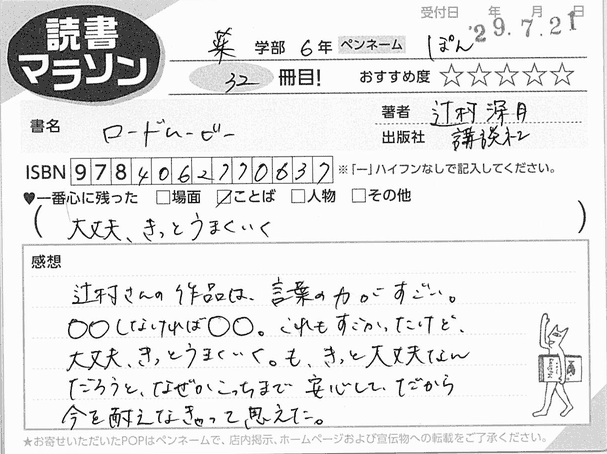 受付日 年 月 日
'29.7.21
読書
マラソン
薬 学部 6年 ペンネーム ぽん
32 冊目! おすすめ度 ☆☆☆☆☆
書名 ロードムービー
著者 辻村深月
出版社 講談社
ISBN 9784062770637 ※「ー」ハイフンなしで記入してください。
♥一番心に残った □場面 ☑ことば □人物 □その他
(大丈夫、きっとうまくいく)
感想
辻村さんの作品は、言葉の力がすごい。
〇〇しなければ〇〇。これもすごかったけど、
大丈夫、きっとうまくいく。も、きっと大丈夫なん
だろうと、なぜかこっちまで安心して、だから
今を耐えなきゃって思えた。
★お寄せいただいたPOPはペンネームで、店内掲示、ホームページおよび宣伝物への転載をご了承ください。